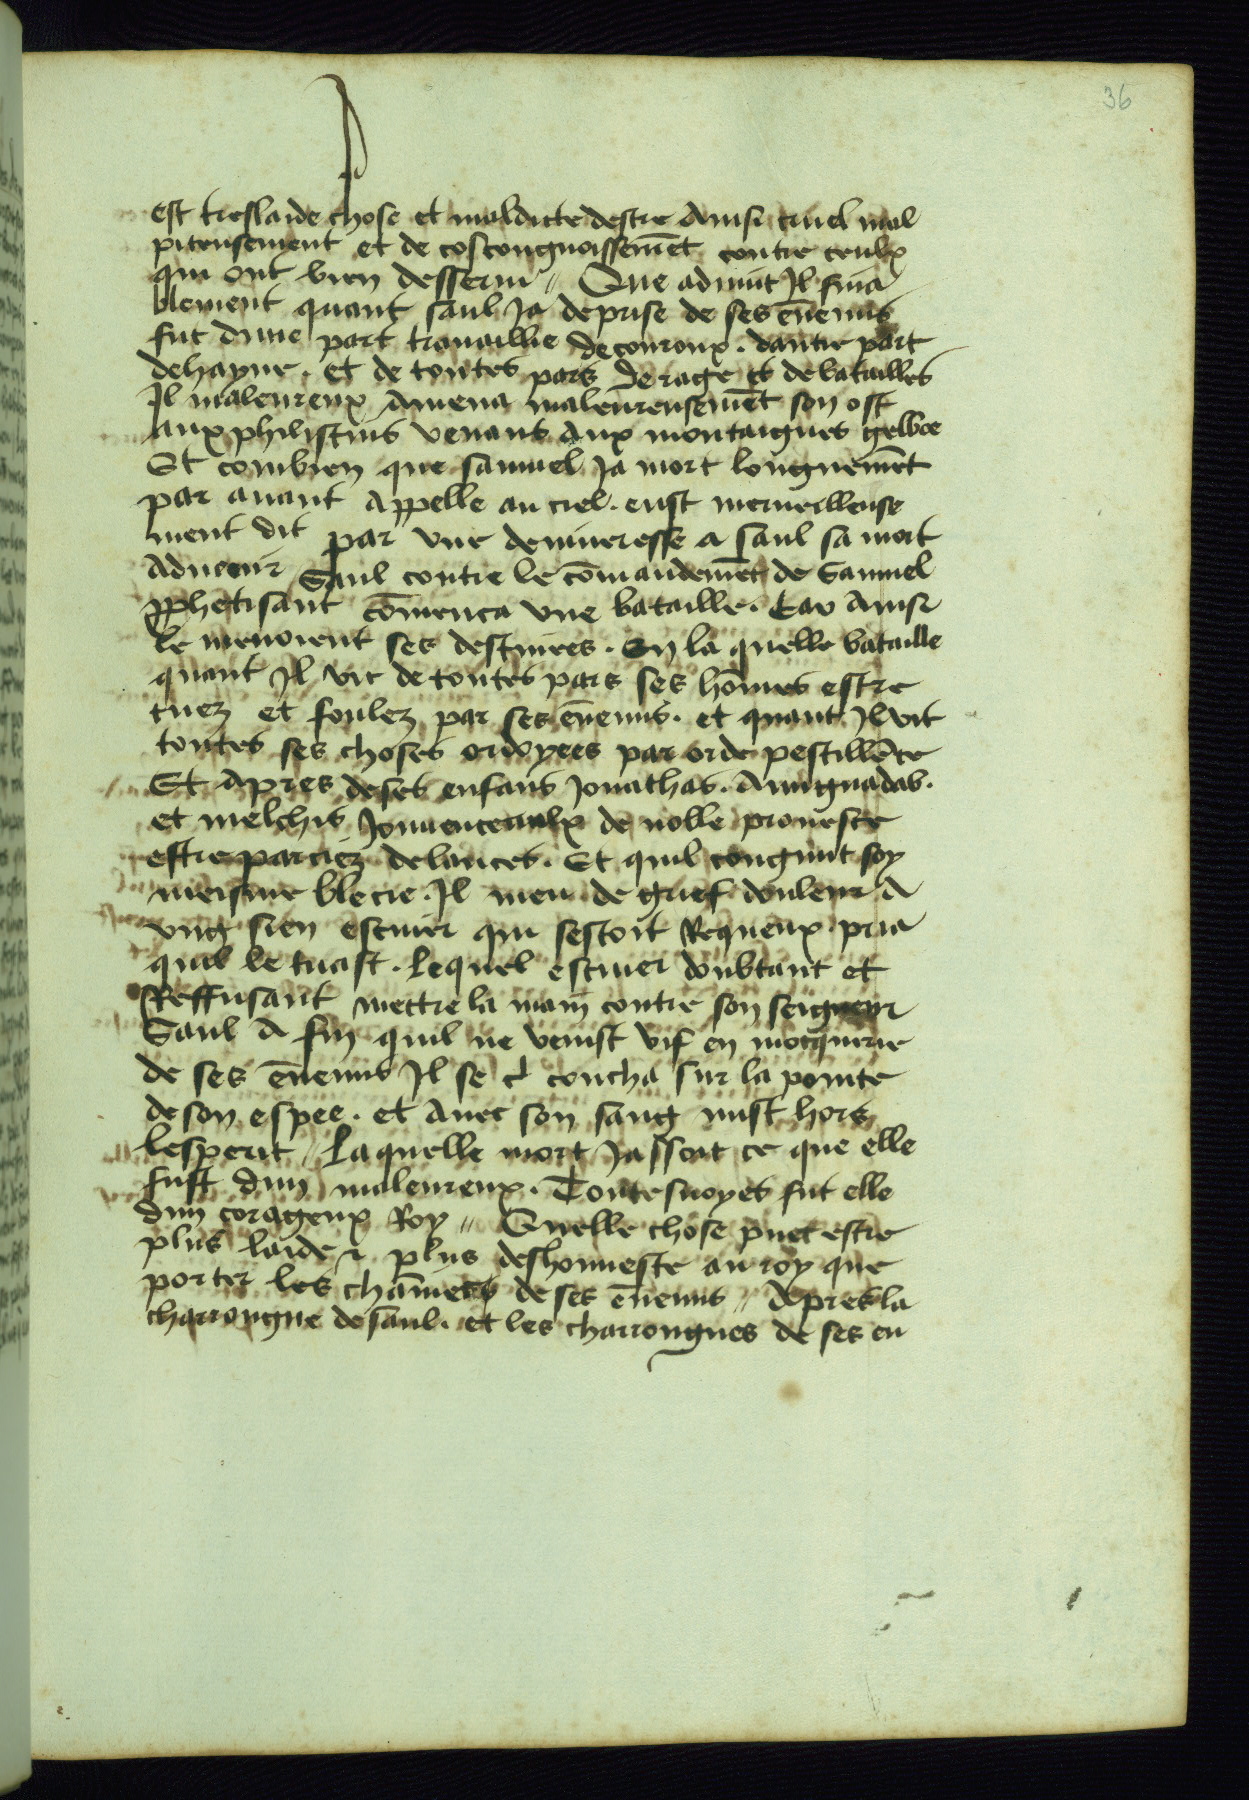 36
est treslaide chose et maldicte destre Ainsi cruel mal
piteusement et de coscongnoissemēt contre ceulx
qui ont bien desservi // Que advint Il fina
blement quant saul Ja deprise de ses ēnemis
fut dune part travaillie de couroux . dautre part
dehayne . et de toutes pars de rage et de batailles
Il maleureux Amena maleureusemēt son ost
aux philistins venans Aux montaignes gelboe
Et combien que samuel Ja mort longuemēt
par avant Appelle au ciel . eust merveilleuse
ment dit par une devineresse a saul sa mort
Advenir Saul contre le cōmandemēt de Samuel
pphetisant cōmenca une bataille . Car Ainsi
le menoient ses destinees . En la quelle bataille
quant Il vit de toutes pars ses hōmes estre
tuez et foulez par ses ēnemis . et quant Il vit
toutes ses choses ordoyees par orde pestillēce
Et Apres de ses enfans Jonathas . Amignadab .
et melchis Jouvenceaulx de noble prouesce
estre parciez de lances . Et quil congnut soy
meisme blecie . Il meu de grief douleur A
ung sien escuier qui sestoit Requeux pria
quil le tuast . Lequel escuier doubtant et
Reffusant mettre la main contre son seigneur
Saul A fin quil ne venist vif en mocquerie
de ses ēnemis Il se coucha sur la pointe
de son espee . et Avec son sang mist hors
lesperit // La quelle mort Ja ssoit ce que elle
fust dun maleureux . Toutesvoyes fut elle
dun corageux Roy // Quelle chose puet estre
plus laide & plus deshonneste au roy que
porter les de ses ēnemis // Apres la
charrongne de saul . et les charrongnes de ses en